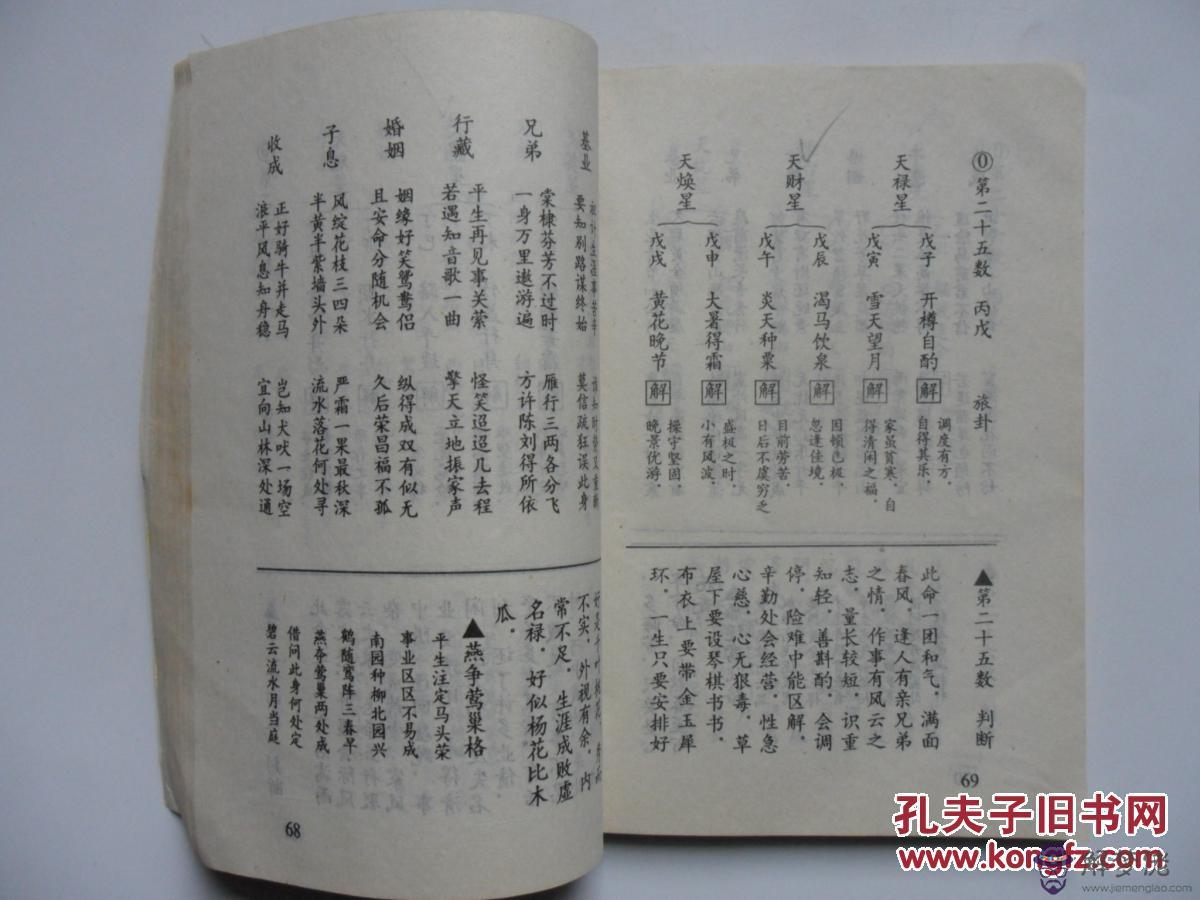 基业
要知别路谋终始
莫信疏狂误此身
兄弟
棠棣芬芳不过时
雁行三两各分飞
一身万里遨游遍
方许陈刘得所依
行藏
平生再见事关萦
怪笑迢迢几去程
若遇知音歌一曲
擎天立地振家声
婚姻
姻缘好笑鸳鸯侣
纵得成双有似无
且安命分随机会
久后荣昌福不孤
子息
风绽花枝三四朵
严霜一果最秋深
半黄半紫墙头外
流水落花何处寻
收成
正好骑牛并走马
岂知犬吠一场空
浪平风息知舟稳
宜向山林深处通
不实，外视有余，内
常不足，生涯成败虚
名禄，好似杨花比木
瓜，
▲燕争莺巢格
平生注定马头荣
事业区区不易成
南园种柳北园兴
鹤随鸾阵三春早
燕争莺巢两处成
借问此身何处定
碧云流水月当庭
68
⓪第二十五数 丙戊 旅卦
天禄星
戊子 开樽自酌 解 调度有方，
自得其乐，
戊寅 雪天望月 解 家虽贫寒，自
得清闲之福，
天财星
戊辰 渴马饮泉 解 困顿已极，
忽逢佳境，
戊午 炎天种粟 解 目前劳苦，
日后不虞穷乏
天焕星
戊申 大暑得霜 解 盛极之时，
小有风波，
戊戌 黄花晚节 解 操守坚固
晚景优游，
▲第二十五数 判断
此命一团和气，满面
春风，逢人有亲兄弟
之情，作事有风云之
志，量长较短，识重
知轻，善斟酌，会调
停，险难中能区解，
辛勤处会经营，性急
心慈，心无狠毒，草
屋下要设琴棋书书，
布衣上要带金玉犀
环，一生只要安排好
69
孔夫子旧书网
www.kongfz.com
解梦佬
www.jiemenglao.com